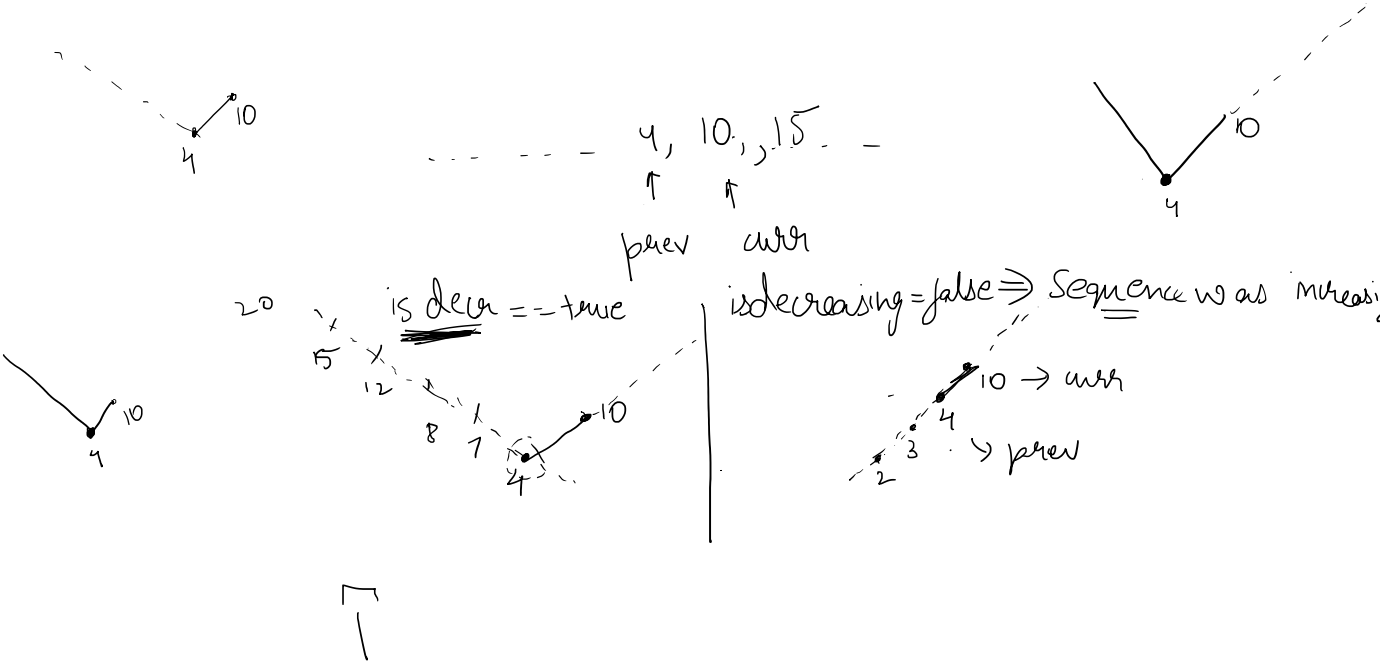 10
4
4, 10, , 15
10
4
prev curr
20
is decr == true
isdecreasing = false ⇒ Sequence was increasi
15
12
8
7
4
10
10
4
10 → curr
4
3 → prev
2